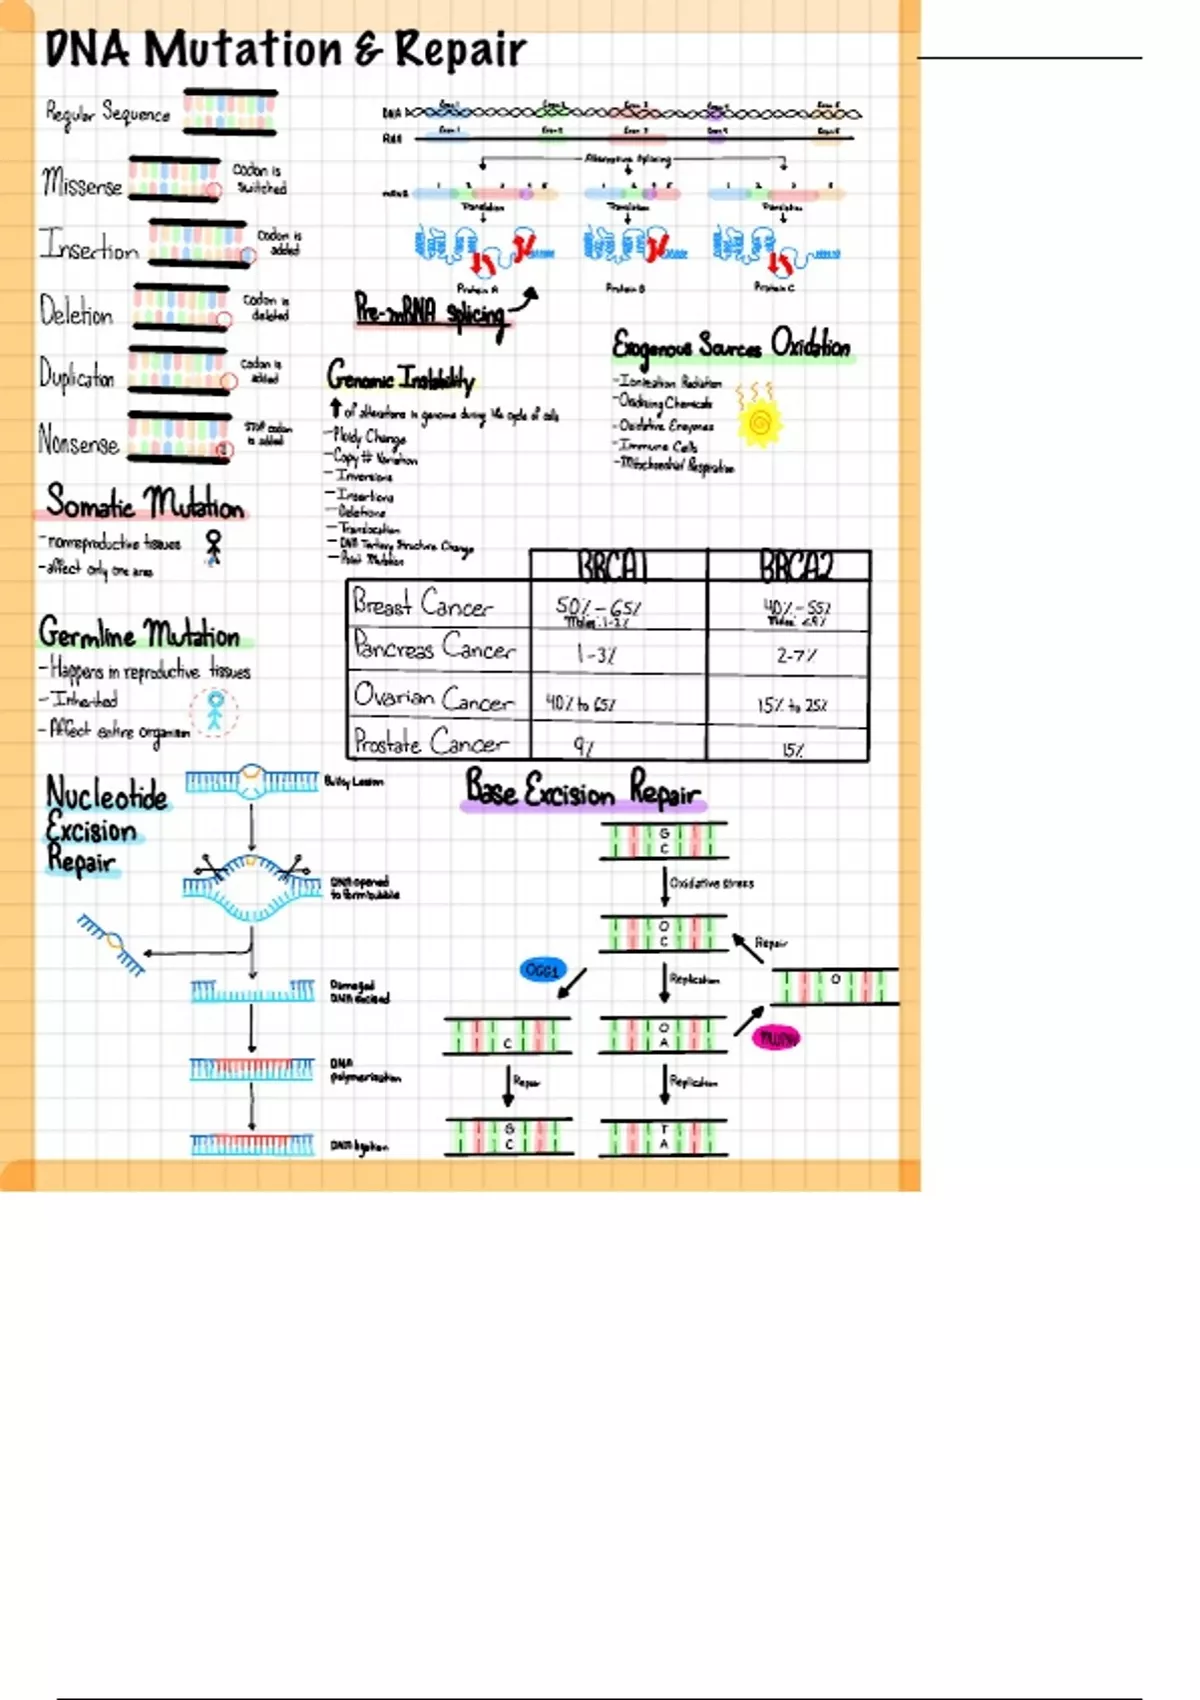 DNA Mutation & Repair
Regular Sequence
Missense
Codon is
switched
Insertion
Codon is
added
Deletion
Codon is
deleted
Duplication
Codon is
added
Nonsense
STOP codon
is added
Somatic Mutation
-nonreproductive tissues
-affect only one area
Germline Mutation
-Happens in reproductive tissues
-Inherited
-Affect entire organism
DNA
Exon 1 Exon 2 Exon 3 Exon 4 Exon 5
RNA
Exon 1 Exon 2 Exon 3 Exon 4 Exon 5
Alternative Splicing
mRNA
1 2 3 4 5
1 2 4 5
1 2 3 5
Translation Translation Translation
Protein A Protein B Protein C
Pre-mRNA splicing
Genomic Instability
↑ of alterations in genome during life cycle of cells
-Ploidy Change
-Copy # Variation
-Inversions
-Insertions
-Deletions
-Translocation
-DNA Tertiary Structure Change
-Point Mutation
Exogenous Sources Oxidation
-Ionization Radiation
-Oxidizing Chemicals
-Oxidative Enzymes
-Immune Cells
-Mitochondrial Respiration
BRCA1 BRCA2
Breast Cancer 50%-65% 40%-55%
Males: 1-2%
Pancreas Cancer 1-3% 2-7%
Ovarian Cancer 40% to 65% 15% to 25%
Prostate Cancer 9% 15%
Nucleotide
Excision
Repair
Bulky Lesion
DNA opened
to form bubble
Damaged
DNA excised
DNA
polymerization
DNA ligation
Base Excision Repair
G
C
Oxidative stress
O
C
Repair
O
OGG1
Replication
C
O
A
Repair
Replication
G
C
T
A